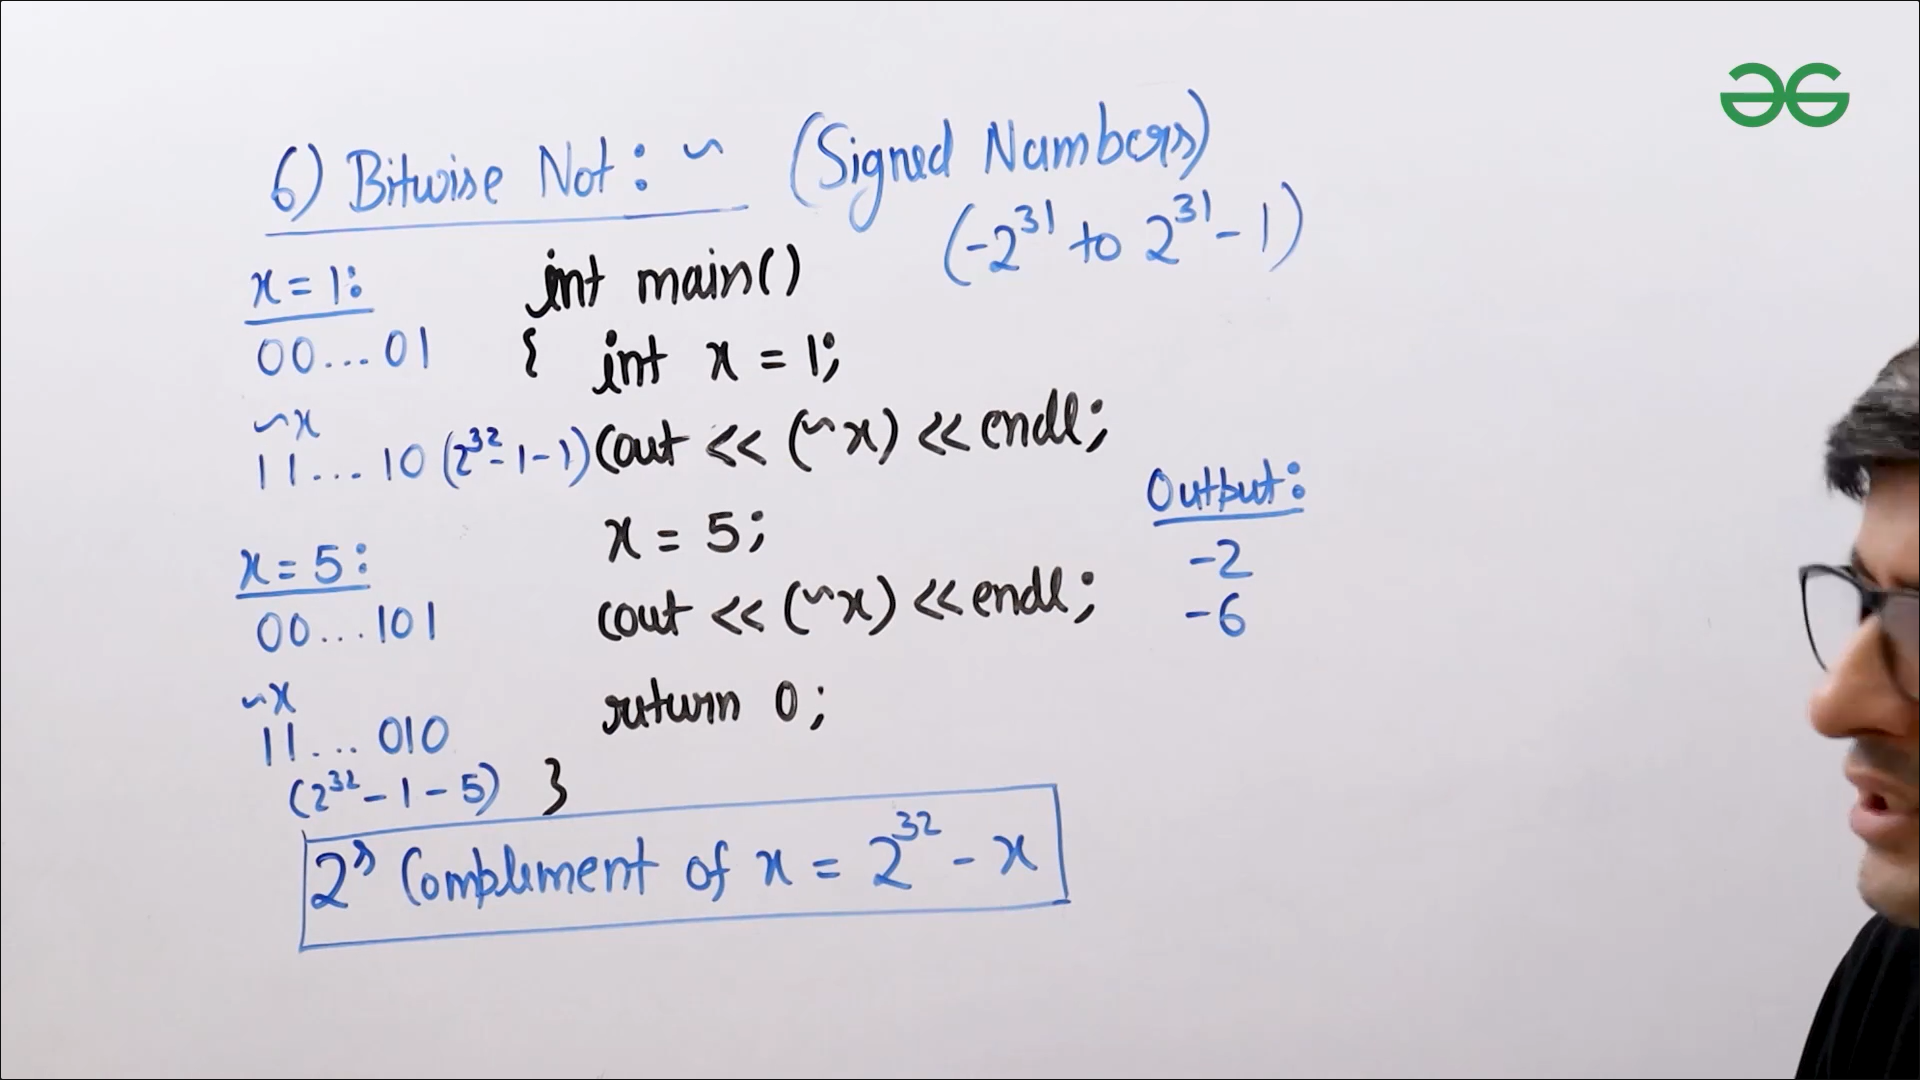 6) Bitwise Not: ~ (Signed Numbers)
(-2^31 to 2^31 - 1)
x = 1:
00...01
~x
11...10 (2^32 - 1 - 1)
x = 5:
00...101
~x
11...010
(2^32 - 1 - 5)
int main()
{ int x = 1;
cout << (~x) << endl;
x = 5;
cout << (~x) << endl;
return 0;
}
Output:
-2
-6
2's Complement of x = 2^32 - x